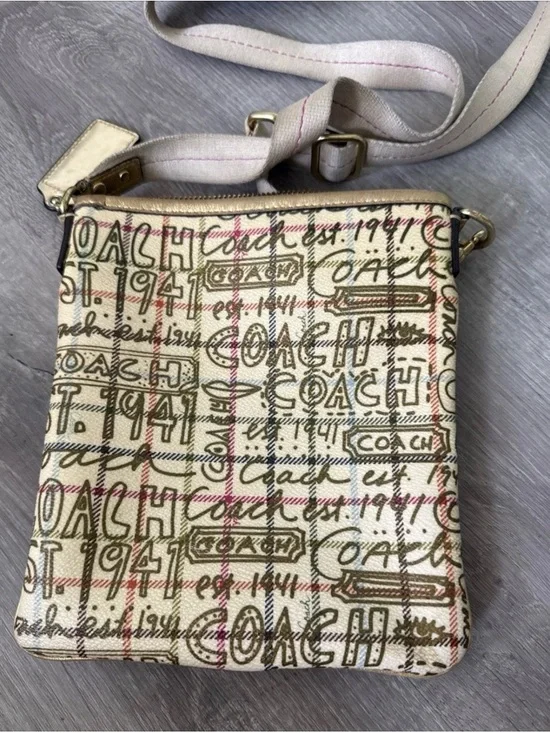 OACH Coach est. 1941 C
ST. 1941 COACH COach
est. 1941
Coach est. 1941 COACH
COACH COACH
T. 1941 COACH est. 1941 COACH
Coach est. 19
OACH Coach est. 1941
ST. 1941 COACH COach
est. 1941
Coach est. 1941 COACH